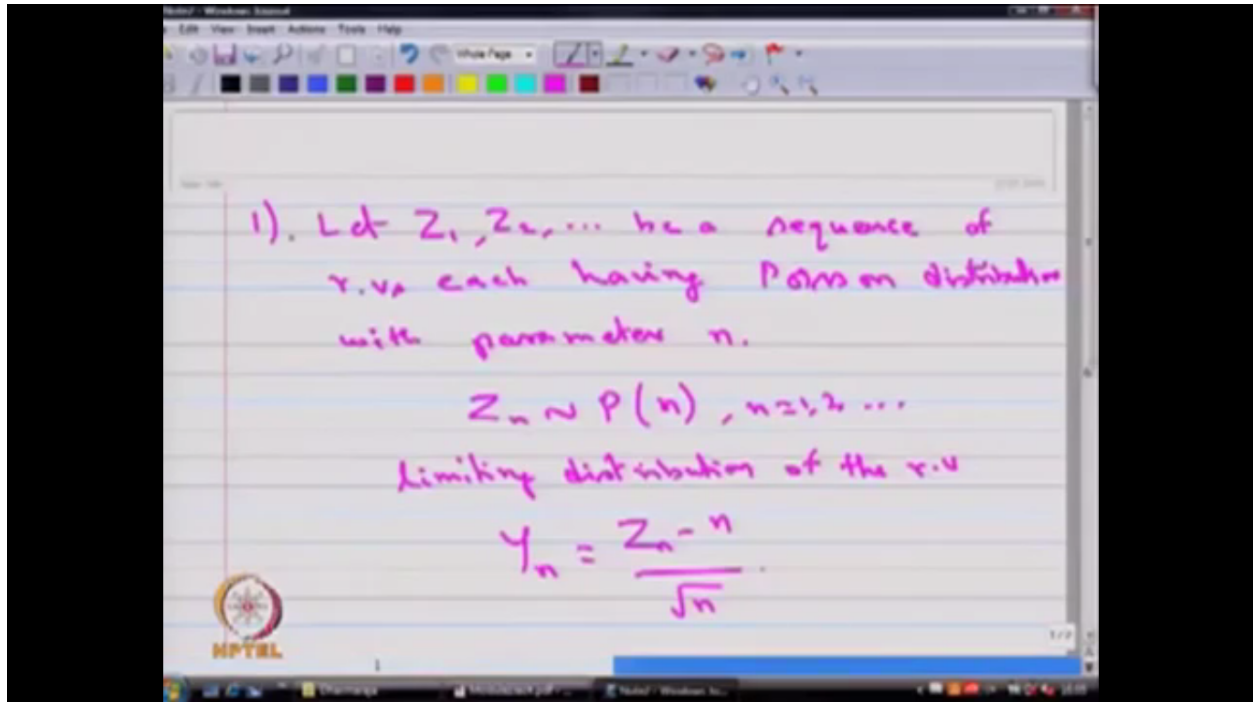 Edit View Insert Actions Tools Help
Whole Page
1). Let Z₁, Z₂, ... be a sequence of
r.vs each having Poisson distribution
with parameter n.
Zₙ ~ P(n), n=1,2, ...
Limiting distribution of the r.v
Yₙ = (Zₙ - n)/√n
NPTEL
1
1/2
Dharmaraja